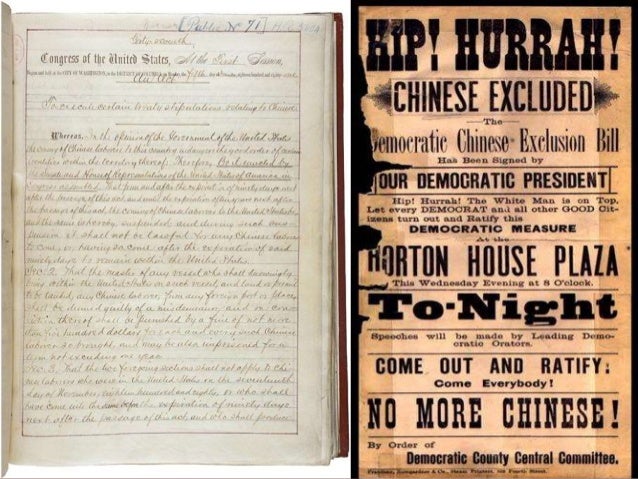 [Public No 71]
Forty-seventh
Congress of the United States, At the First Session,
Begun and held at the CITY OF WASHINGTON, in the DISTRICT OF COLUMBIA, on Monday, the fifth day of December, eighteen hundred and eighty-one
An Act
To execute certain treaty stipulations relating to Chinese.
Whereas, In the opinion of the Government of the United States
the coming of Chinese laborers to this country endangers the good order of certain
localities within the territory thereof: Therefore, Be it enacted by
the Senate and House of Representatives of the United States of America in
Congress assembled, That from and after the expiration of ninety days next
after the passage of this act, and until the expiration of ten years next after
the passage of this act, the coming of Chinese laborers to the United States be,
and the same is hereby, suspended; and during such sus-
pension it shall not be lawful for any Chinese laborer
to come, or, having so come after the expiration of said
ninety days, to remain within the United States.
Sec. 2. That the master of any vessel who shall knowingly
bring within the United States on such vessel, and land or permit
to be landed, any Chinese laborer, from any foreign port or place,
shall be deemed guilty of a misdemeanor, and on con-
viction thereof shall be punished by a fine of not more
than five hundred dollars for each and every such Chinese
laborer so brought, and may be also imprisoned for a
term not exceeding one year.
Sec. 3. That the two foregoing sections shall not apply to Chi-
nese laborers who were in the United States on the seventeenth
day of November, eighteen hundred and eighty, or who shall
have come into the same before the expiration of ninety days
next after the passage of this act, and who shall produce
HIP! HURRAH!
CHINESE EXCLUDED
The
Democratic Chinese Exclusion Bill
Has Been Signed by
OUR DEMOCRATIC PRESIDENT
Hip! Hurrah! The White Man is on Top.
Let every DEMOCRAT and all other GOOD Cit-
izens turn out and Ratify this
DEMOCRATIC MEASURE
At the
HORTON HOUSE PLAZA
This Wednesday Evening at 8 O'clock.
To-Night
Speeches will be made by Leading Demo-
cratic Orators.
COME OUT AND RATIFY:
Come Everybody!
NO MORE CHINESE!
By Order of
Democratic County Central Committee.
& Co., Steam Printers, Fourth Street.